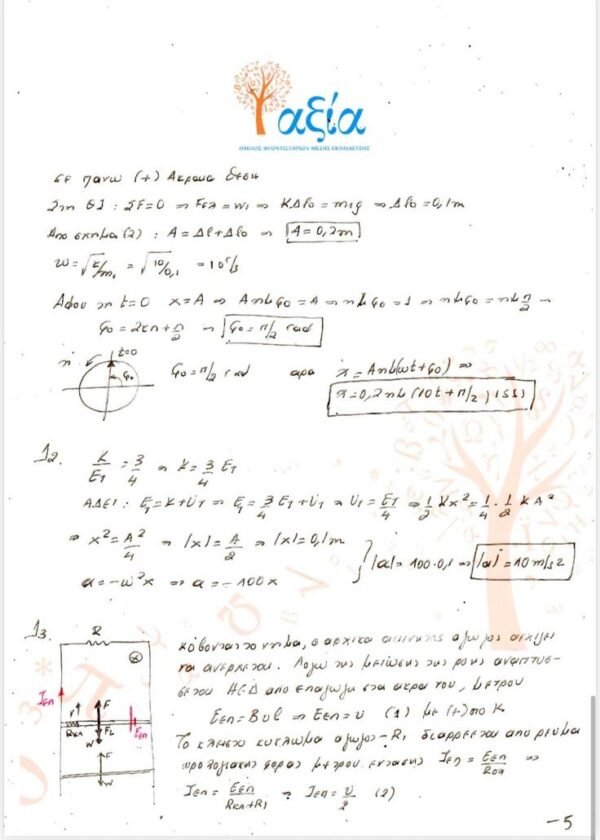 αξία
ΟΜΙΛΟΣ ΦΡΟΝΤΙΣΤΗΡΙΩΝ ΜΕΣΗΣ ΕΚΠΑΙΔΕΥΣΗΣ
σε πάνω (+) Ακραια θέση
Στη ΘΙ : ΣF=0 ⇒ Fελ = w₁ ⇒ KΔl₀ = m₁g ⇒ Δl₀ = 0,1m
Απο σχήμα (2) : A = Δl + Δl₀ ⇒ A = 0,2m
ω = √k/m₁ = √10/0,1 = 10 r/s
Αφου τη t=0 x=A ⇒ Aημφ₀ = A ⇒ ημφ₀ = 1 ⇒ ημφ₀ = ημ π/2 ⇒
φ₀ = 2κπ + π/2 ⇒ φ₀ = π/2 rad
t=0
φ₀
φ₀ = π/2 rad αρα x = Aημ(ωt+φ₀) ⇒
x = 0,2ημ(10t + π/2) (SI)
Γ2.
K/E_T = 3/4 ⇒ K = 3/4 E_T
ΑΔΕΤ : E_T = K + U_T ⇒ E_T = 3/4 E_T + U_T ⇒ U_T = E_T/4 ⇒ 1/2 Kx² = 1/4 · 1/2 KA²
⇒ x² = A²/4 ⇒ |x| = A/2 ⇒ |x| = 0,1m
a = -ω²x ⇒ a = -100x
|a| = 100·0,1 ⇒ |a| = 10 m/s2
Γ3.
R
Iεπ
r
F
Rκλ
FL
w
Eεπ
F
w
κόβοντας το νημα, ο αρχικα ακινητος αγωγος αρχιζει
να ανερχεται. Λογω της μειωσης της ροης αναπτυσ-
σεται ΗΕΔ απο επαγωγη στα ακρα του, μετρου
Eεπ = Bυl ⇒ Eεπ = υ (1) με (+) στο Κ
Το κλειστο κυκλωμα αγωγος - R₁ διαρρεεται απο ρευμα
ωρολογιακης φορας μετρου εντασης Iεπ = Eεπ/Rολ ⇒
Iεπ = Eεπ/Rκλ+R₁ ⇒ Iεπ = υ/2 (2)
-5